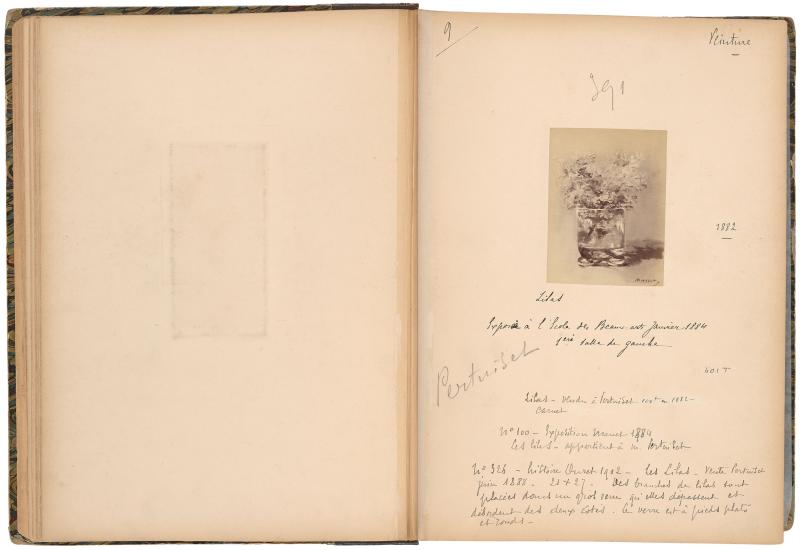 9
Peinture
391
1882
Lilas
Exposé à l'Ecole des Beaux-arts Janvier 1884
1ère salle de gauche
Pertuiset
401 T
Lilas – vendu à Pertuiset en 1882 –
Carnet
N° 100 – Exposition Manet 1884
Les lilas – appartient à M. Pertuiset
N° 326 – histoire Duret 1902 – Les Lilas – Vente Pertuiset
juin 1888 – 21 + 27 – Des branches de lilas sont
placées dans un gros verre qu'elles dépassent et
débordent des deux côtés. Le verre est à pieds plats
et ronds –